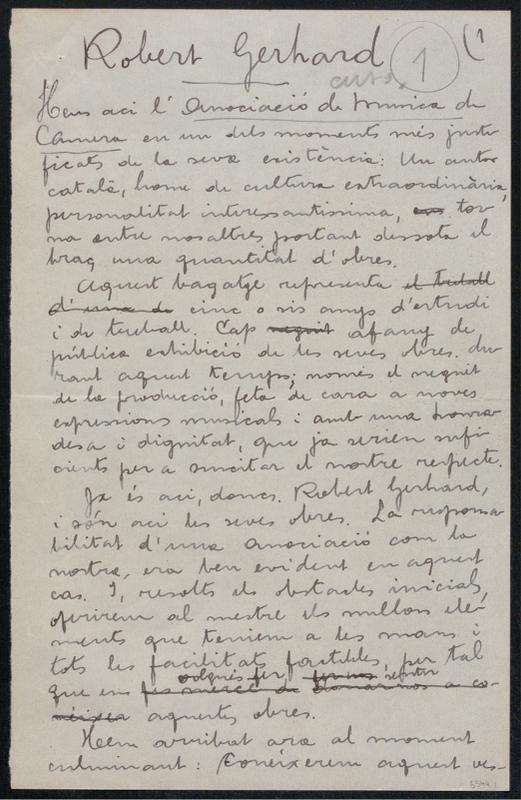 Robert Gerhard
1
(1
Heus aci l'Associació de Musica de
Camera en un dels moments més justi
ficats de la seva existència: Un autor
català, home de cultura extraordinària,
personalitat interessantissima, ens tor
na entre nosaltres portant dessota el
braç una quantitat d'obres.
Aquest bagatge representa el treball
d'una de cinc o sis anys d'estudi
i de treball. Cap neguit afany de
pública exhibició de les seves obres, du
rant aquest temps; només el neguit
de la producció, feta de cara a noves
expressions musicals i amb una honra
desa i dignitat, que ja serien sufi
cients per a suscitar el nostre respecte.
Ja és aci, doncs, Robert Gerhard,
i són aci les seves obres. La responsa
bilitat d'una Associació com la
nostra, era ben evident en aquest
cas. I, resolts els obstacles inicials,
oferirem al mestre els millors ele-
ments que teniem a les mans i
tots les facilitats factibles, per tal
volgués fer sentir
que ens fes mercè de donar-nos a co-
nèixer aquestes obres.
Hem arribat ara al moment
culminant: Coneixerem aquest ves-